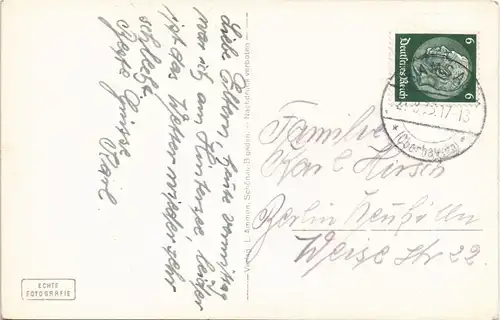 Liebe Eltern, heute vormittag
war ich am Hintersee, leider
ist das Wetter wieder sehr
schlecht.
Beste Grüsse
Karl.
Verlag L. Ammon, Schönau-B'gaden. - Nachdruck verboten -
ECHTE
FOTOGRAFIE
6 6
Deutsches Reich
17-18
(Oberbayern)
Familie
Karl Hirsch
Berlin Neukölln
Weise Str 22